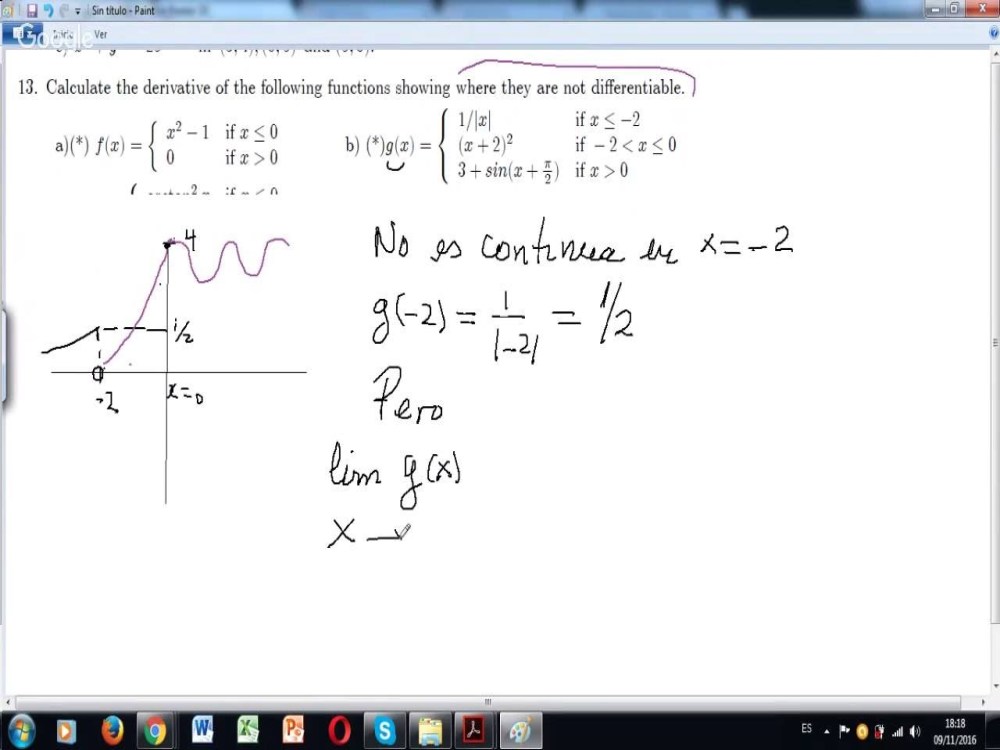 Sin título - Paint
Google
Ver
13. Calculate the derivative of the following functions showing where they are not differentiable.
a)(*) f(x) = { x² − 1 if x ≤ 0
0 if x > 0
b) (*)g(x) = { 1/|x| if x ≤ −2
(x + 2)² if −2 < x ≤ 0
3 + sin(x + π/2) if x > 0
4
1/2
-2
x=0
No es continua en x = -2
g(-2) = 1/|-2| = 1/2
Pero
lim g(x)
x →
ES
18:18
09/11/2016